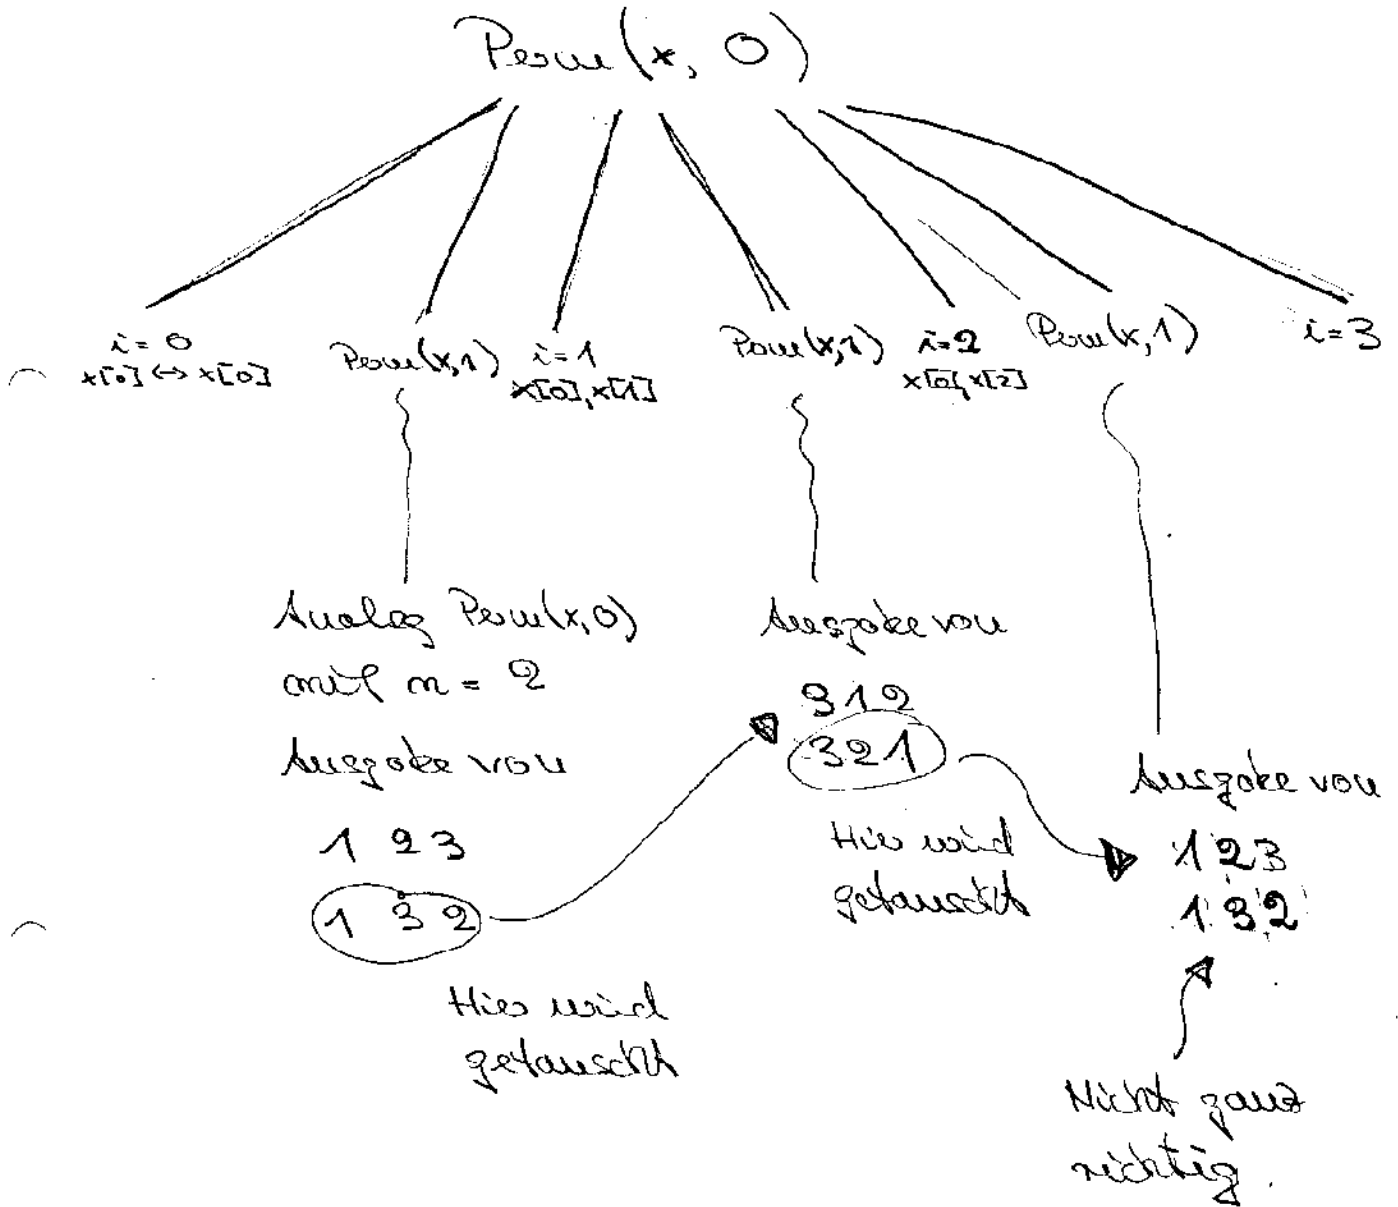 Perm(x, 0)
i = 0
x[0] ↔ x[0]
Perm(x,1)
i = 1
x[0], x[1]
Perm(x,1)
i = 2
x[0], x[2]
Perm(x,1)
i = 3
Analog Perm(x,0)
mit n = 2
Ausgabe von
1 2 3
1 3 2
Hier wird
getauscht
Ausgabe von
3 1 2
3 2 1
Hier wird
getauscht
Ausgabe von
1 2 3
1 3 2
Nicht ganz
richtig.